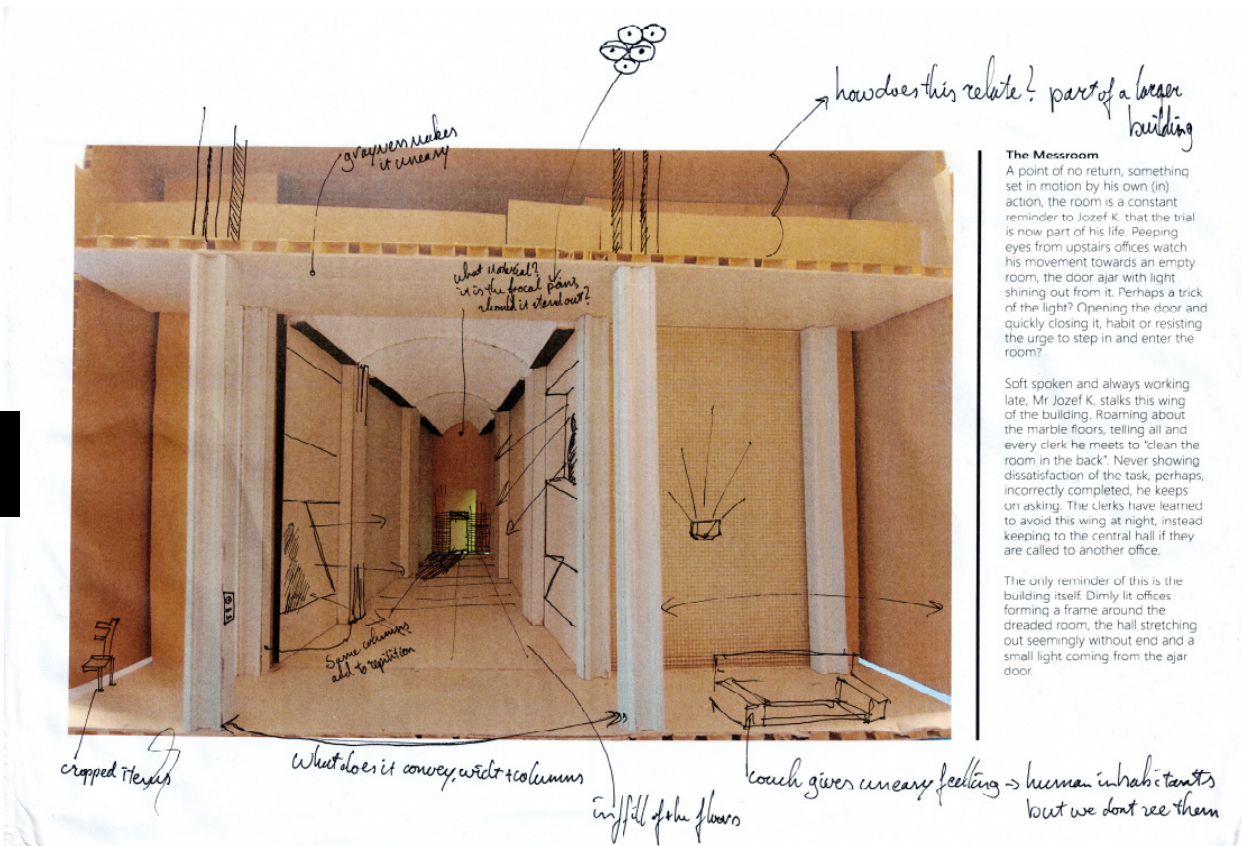 how does this relate? part of a larger
building
grayness makes
it uneasy
what material?
it is the focal point,
should it stand out?
Same columns
add to repitition
cropped items
What does it convey, widt + columns
infill of the floors
couch gives uneasy feelling → human inhabitants
but we dont see them
The Messroom
A point of no return, something
set in motion by his own (in)
action, the room is a constant
reminder to Jozef K. that the trial
is now part of his life. Peeping
eyes from upstairs offices watch
his movement towards an empty
room, the door ajar with light
shining out from it. Perhaps a trick
of the light? Opening the door and
quickly closing it, habit or resisting
the urge to step in and enter the
room?
Soft spoken and always working
late, Mr Jozef K. stalks this wing
of the building. Roaming about
the marble floors, telling all and
every clerk he meets to “clean the
room in the back”. Never showing
dissatisfaction of the task, perhaps,
incorrectly completed, he keeps
on asking. The clerks have learned
to avoid this wing at night, instead
keeping to the central hall if they
are called to another office.
The only reminder of this is the
building itself. Dimly lit offices
forming a frame around the
dreaded room, the hall stretching
out seemingly without end and a
small light coming from the ajar
door.